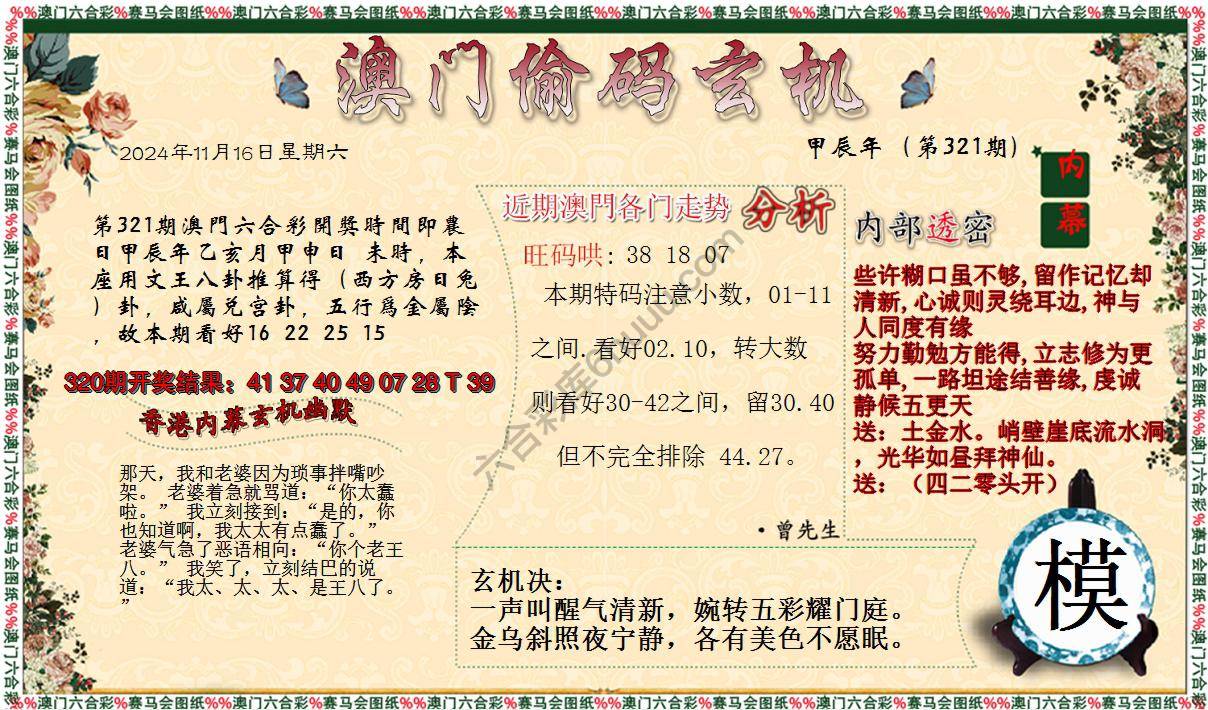 %%澳门六合彩%赛马会图纸%%澳门六合彩%赛马会图纸%%澳门六合彩%赛马会图纸%%澳门六合彩%赛马会图纸%%澳门六合彩%赛马会图纸%%澳门六合彩%赛马会图纸%%
澳门偷码玄机
2024年11月16日星期六
甲辰年（第321期）
内幕
第321期澳門六合彩開獎時間即農
日甲辰年乙亥月甲申日 未時，本
座用文王八卦推算得（西方房日兔
）卦，咸屬兑宫卦，五行爲金屬陰
，故本期看好16 22 25 15
320期开奖结果：41 37 40 49 07 28 T 39
香港内幕玄机幽默
那天，我和老婆因为琐事拌嘴吵
架。 老婆着急就骂道：“你太蠢
啦。” 我立刻接到：“是的，你
也知道啊，我太太有点蠢了。”
老婆气急了恶语相向：“你个老王
八。” 我笑了，立刻结巴的说
道：“我太、太、太、是王八了。
”
近期澳門各门走势 分析
旺码哄：38 18 07
本期特码注意小数，01-11
之间.看好02.10，转大数
则看好30-42之间，留30.40
但不完全排除 44.27。
·曾先生
内部透密
些许糊口虽不够,留作记忆却
清新,心诚则灵绕耳边,神与
人同度有缘
努力勤勉方能得,立志修为更
孤单,一路坦途结善缘,虔诚
静候五更天
送：土金水。峭壁崖底流水洞
，光华如昼拜神仙。
送：（四二零头开）
玄机决：
一声叫醒气清新，婉转五彩耀门庭。
金乌斜照夜宁静，各有美色不愿眠。
模
%%澳门六合彩%赛马会图纸%%澳门六合彩%赛马会图纸%%澳门六合彩%赛马会图纸%%澳门六合彩%赛马会图纸%%澳门六合彩%赛马会图纸%%澳门六合彩%赛马会图纸%%